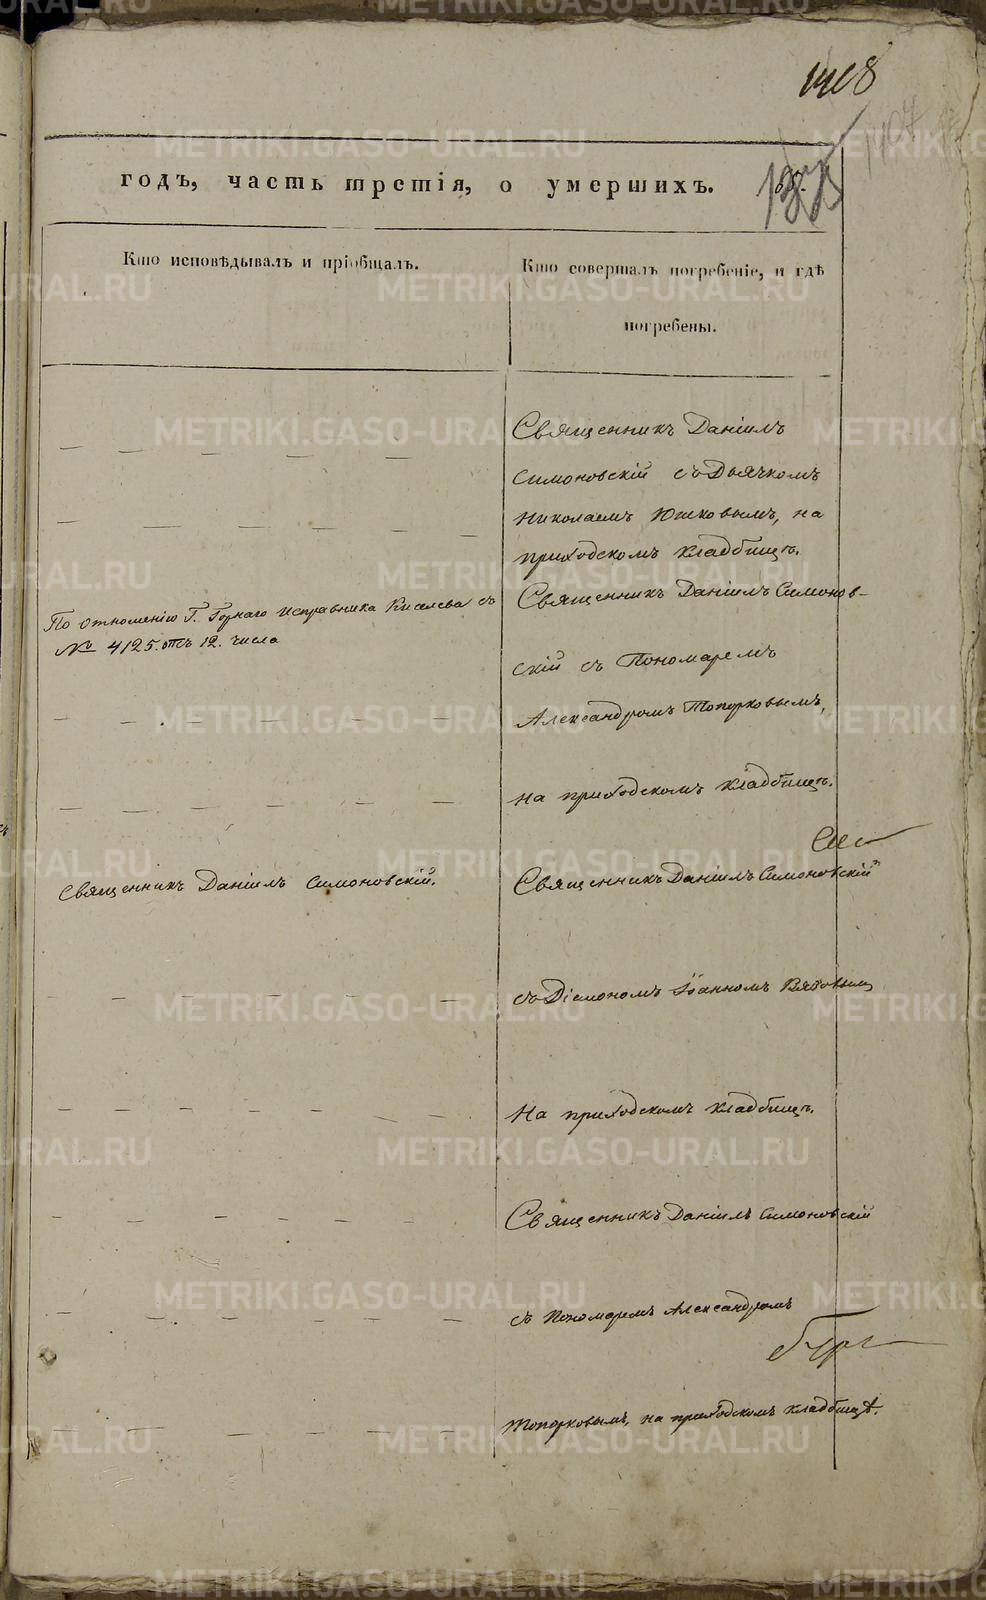 1408
годъ, часть третія, о умершихъ.
Кто исповѣдывалъ и пріобщалъ.
Кто совершалъ погребеніе, и гдѣ
погребены.
Священникъ Даніилъ
Симоновскій съ Дьячкомъ
Николаемъ Южковымъ, на
приходскомъ кладбищѣ.
По отношенію Г. Горнаго Исправника Киселева съ
№ 4125. отъ 12. числа
Священникъ Даніилъ Симонов-
скій съ Пономаремъ
Александромъ Топорковымъ,
на приходскомъ кладбищѣ.
Священникъ Даніилъ Симоновскій.
Священникъ Даніилъ Симоновскій
съ Діакономъ Іоанномъ
На приходскомъ кладбищѣ.
Священникъ Даніилъ Симоновскій
съ Пономаремъ Александромъ
Топорковымъ, на приходскомъ кладбищѣ.
METRIKI.GASO-URAL.RU